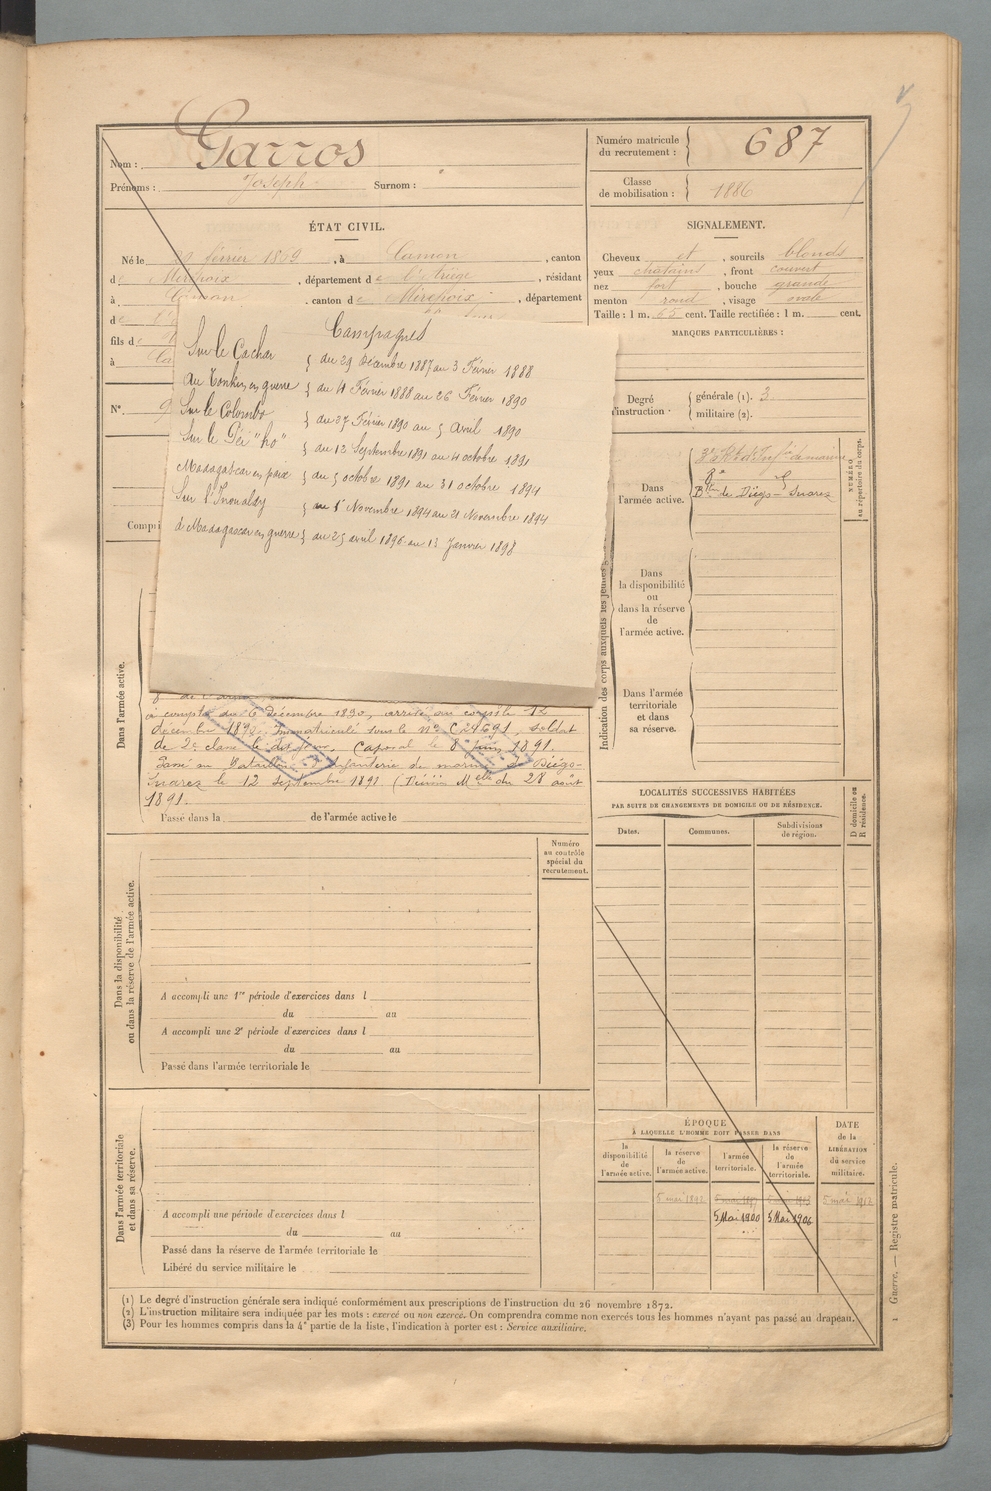 Nom : Garros
Prénoms : Joseph Surnom :
Numéro matricule du recrutement : 687
Classe de mobilisation : 1886
ÉTAT CIVIL.
Né le février 1869, à Camon, canton
de Mirepoix, département de l'Ariège, résidant
à Camon, canton de Mirepoix, département
de
fils de
à
N°.
Compri
SIGNALEMENT.
Cheveux et, sourcils blonds
yeux chatains, front couvert
nez fort, bouche grande
menton rond, visage ovale
Taille : 1 m. 63 cent. Taille rectifiée : 1 m. cent.
MARQUES PARTICULIÈRES :
Degré d'instruction
générale (1). 3
militaire (2).
Campagnes
Sur le Cachar } du 29 Décembre 1887 au 3 Février 1888
Au Tonkin en guerre } du 4 Février 1888 au 26 Février 1890
Sur le Colombo } du 27 Février 1890 au 5 Avril 1890
Sur le Péï "ho" } du 12 Septembre 1891 au 4 octobre 1891
Madagascar en paix } du 5 octobre 1891 au 31 octobre 1894
Sur l'Iraouaddy } au 1er Novembre 1894 au 21 Novembre 1894
à Madagascar en guerre } du 25 avril 1896 au 13 Janvier 1898
Indication des corps auxquels les jeunes g
NUMÉRO au répertoire du corps.
Dans l'armée active.
de Diégo-Suarez
Dans la disponibilité ou dans la réserve de l'armée active.
Dans l'armée territoriale et dans sa réserve.
Dans l'armée active.
à compter du 6 Décembre 1890, arrivé au corps le 12
décembre 1890. Immatriculé sous le n° C24691, soldat
de 2e classe le dit jour, Caporal le 8 juin 1891.
Passé au Bataillon d'Infanterie de marine de Diégo-
Suarez le 12 Septembre 1891 (Décision Mlle du 28 août
1891.
Passé dans la de l'armée active le
LOCALITÉS SUCCESSIVES HABITÉES
PAR SUITE DE CHANGEMENTS DE DOMICILE OU DE RÉSIDENCE.
Dates.
Communes.
Subdivisions de région.
D domicile ou R résidence.
Numéro au contrôle spécial du recrutement.
Dans la disponibilité ou dans la réserve de l'armée active.
A accompli une 1re période d'exercices dans l
du au
A accompli une 2e période d'exercices dans l
du au
Passé dans l'armée territoriale le
Dans l'armée territoriale et dans sa réserve.
A accompli une période d'exercices dans l
du au
Passé dans la réserve de l'armée territoriale le
Libéré du service militaire le
ÉPOQUE
À LAQUELLE L'HOMME DOIT PASSER DANS
la disponibilité de l'armée active.
la réserve de l'armée active.
l'armée territoriale.
la réserve de l'armée territoriale.
DATE de la LIBÉRATION du service militaire.
5 mai 1892 5 mai 1912
5 Mai 1900 5 Mai 1906
(1) Le degré d'instruction générale sera indiqué conformément aux prescriptions de l'instruction du 26 novembre 1872.
(2) L'instruction militaire sera indiquée par les mots : exercé ou non exercé. On comprendra comme non exercés tous les hommes n'ayant pas passé au drapeau.
(3) Pour les hommes compris dans la 4e partie de la liste, l'indication à porter est : Service auxiliaire.
Guerre. — Registre matricule.